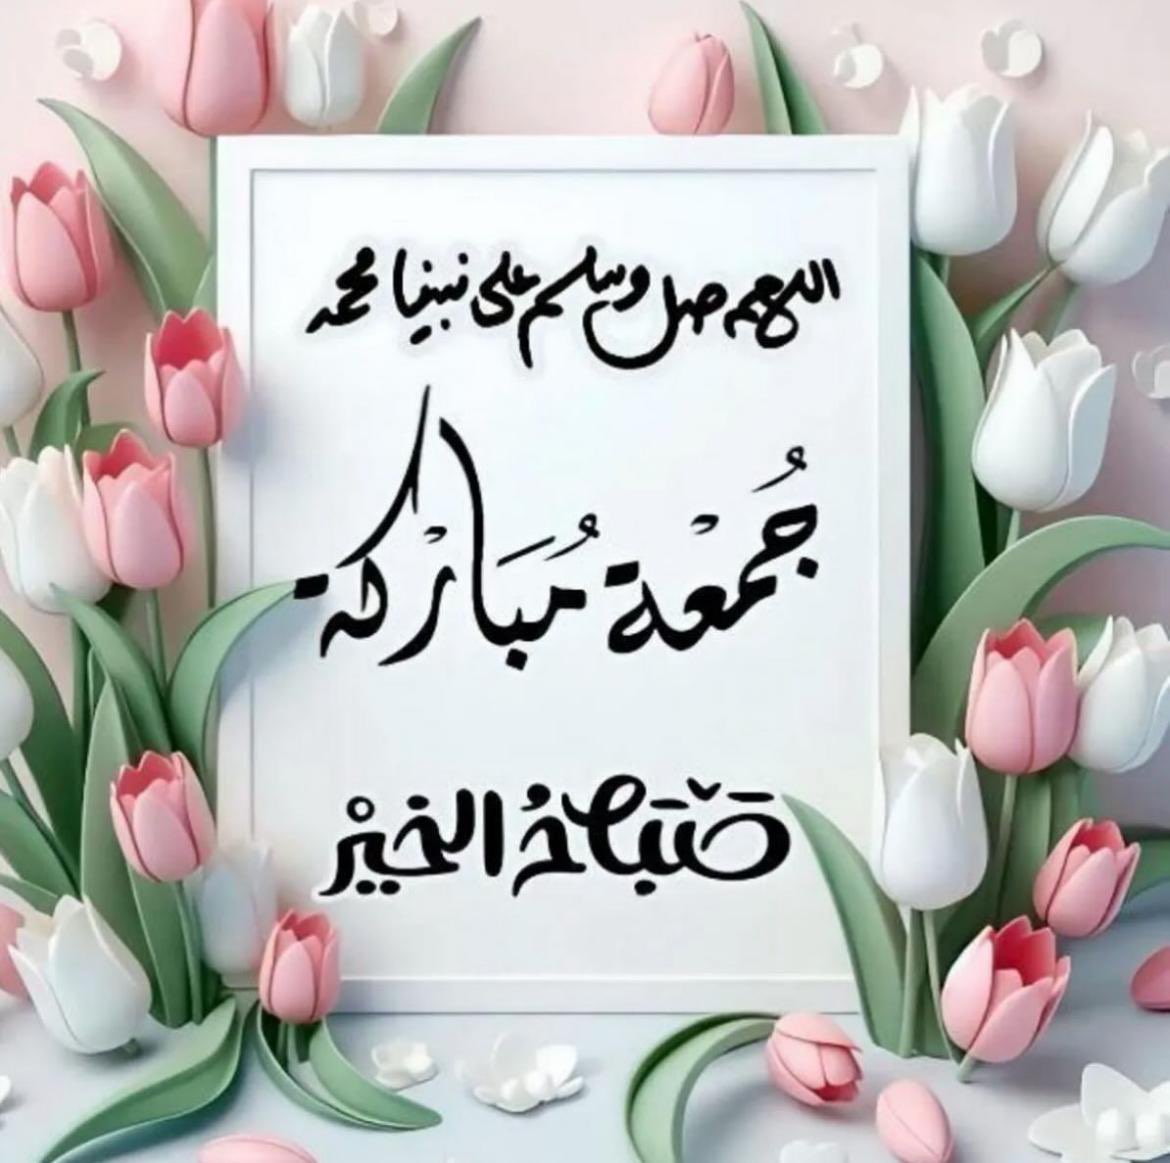 اللهم صل وسلم على نبينا محمد
جُمْعة مُبارْكة
صَبَاحُ الخيْر